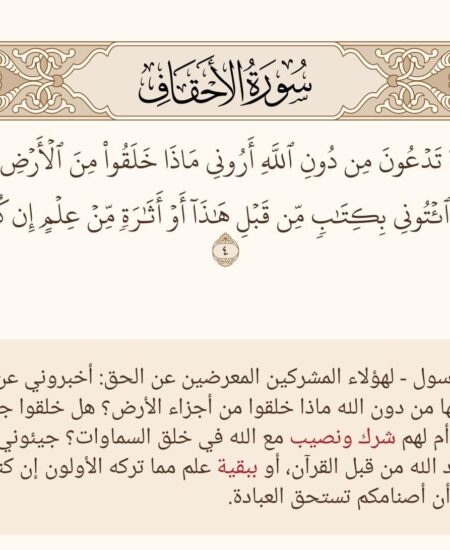 سُورَةُ الأَحۡقَافِ
تَدۡعُونَ مِن دُونِ ٱللَّهِ أَرُونِي مَاذَا خَلَقُواْ مِنَ ٱلۡأَرۡضِ
ٱئۡتُونِي بِكِتَٰبٖ مِّن قَبۡلِ هَٰذَآ أَوۡ أَثَٰرَةٖ مِّنۡ عِلۡمٍ إِن
٤
سول - لهؤلاء المشركين المعرضين عن الحق: أخبروني
ها من دون الله ماذا خلقوا من أجزاء الأرض؟ هل خلقوا
أم لهم شرك ونصيب مع الله في خلق السماوات؟ جيئوني
د الله من قبل القرآن، أو ببقية علم مما تركه الأولون إن
أن أصنامكم تستحق العبادة.